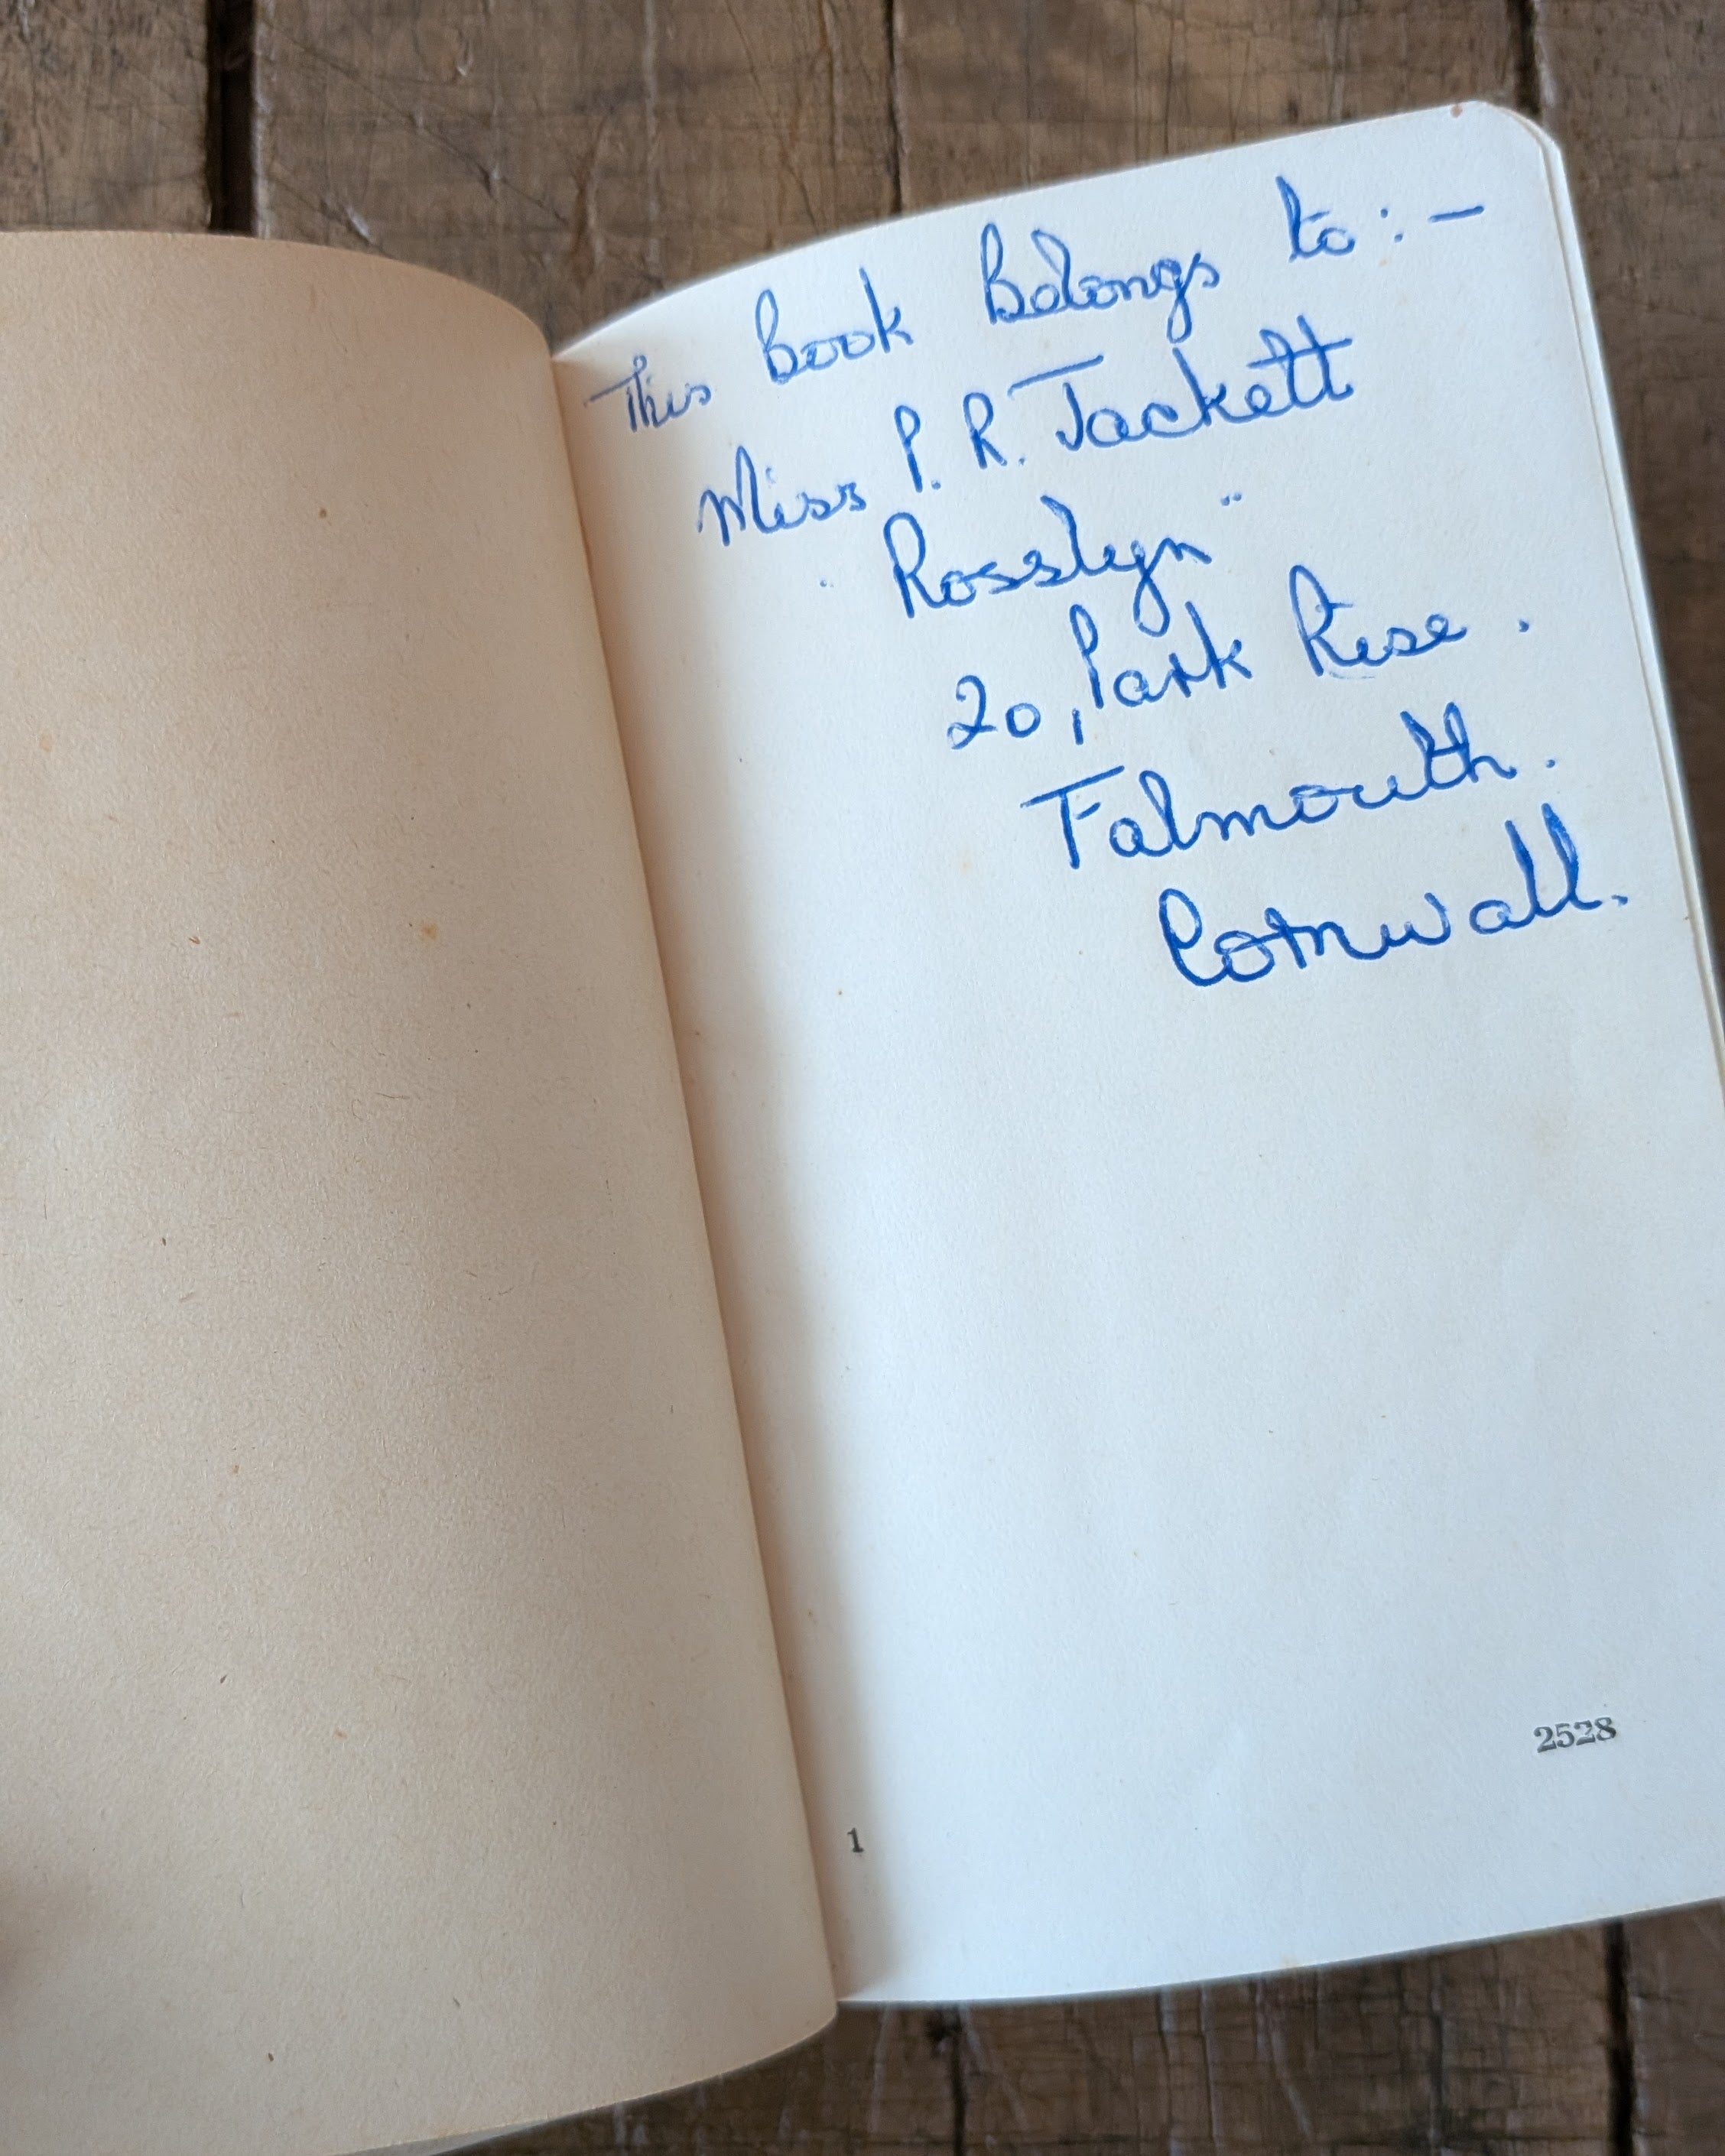 This Book Belongs to:-
Miss P. R. Jackett
"Rosslyn"
20, Park Rise.
Falmouth.
Cornwall.
2528
1